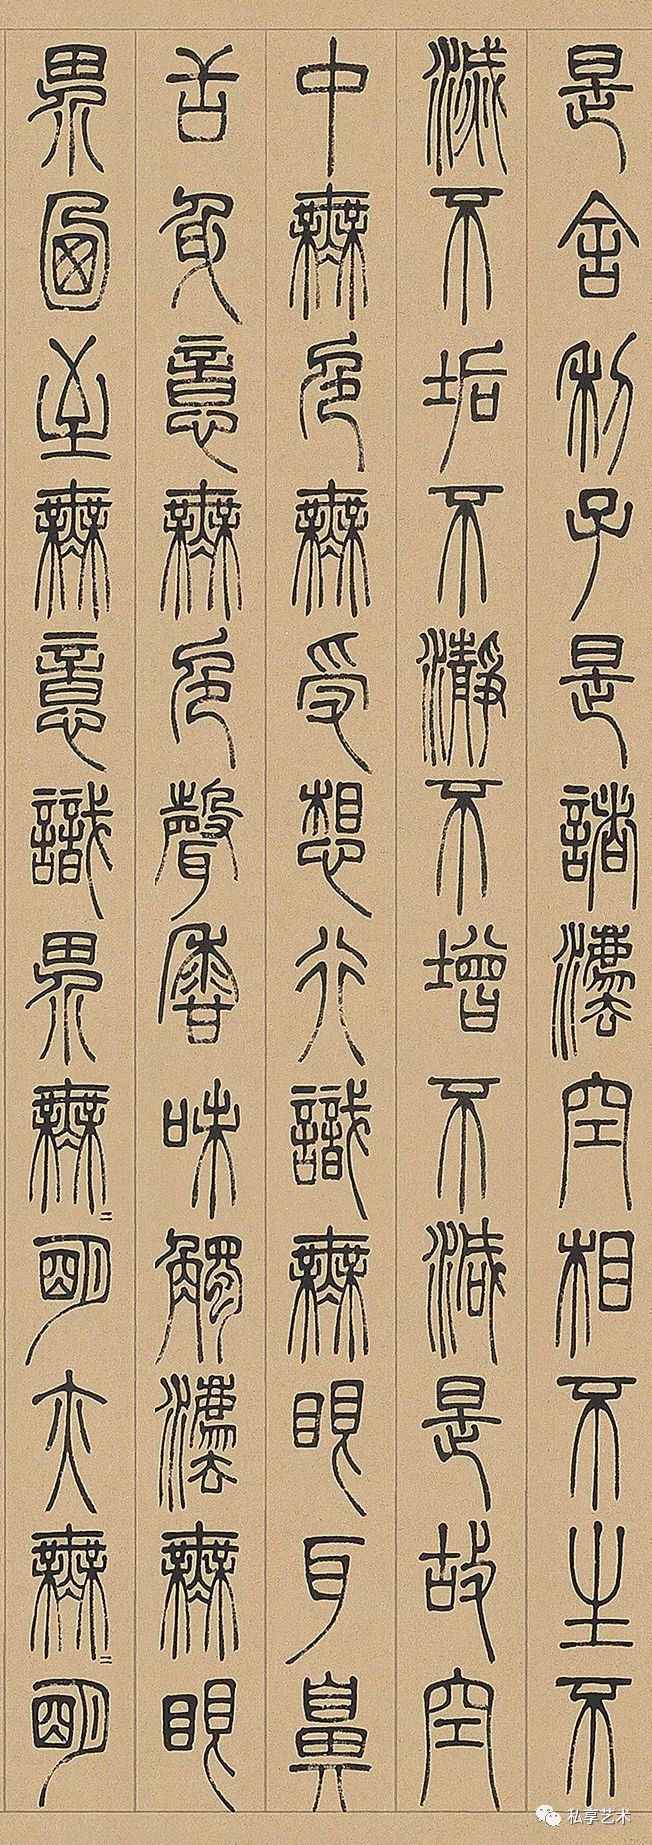 是舍利子是諸灋空相不生不
滅不垢不瀞不增不減是故空
中無色無受想行識無眼耳鼻
舌身意無色聲香味觸灋無眼
界迺至無意識界無二明亦無二明
私享艺术